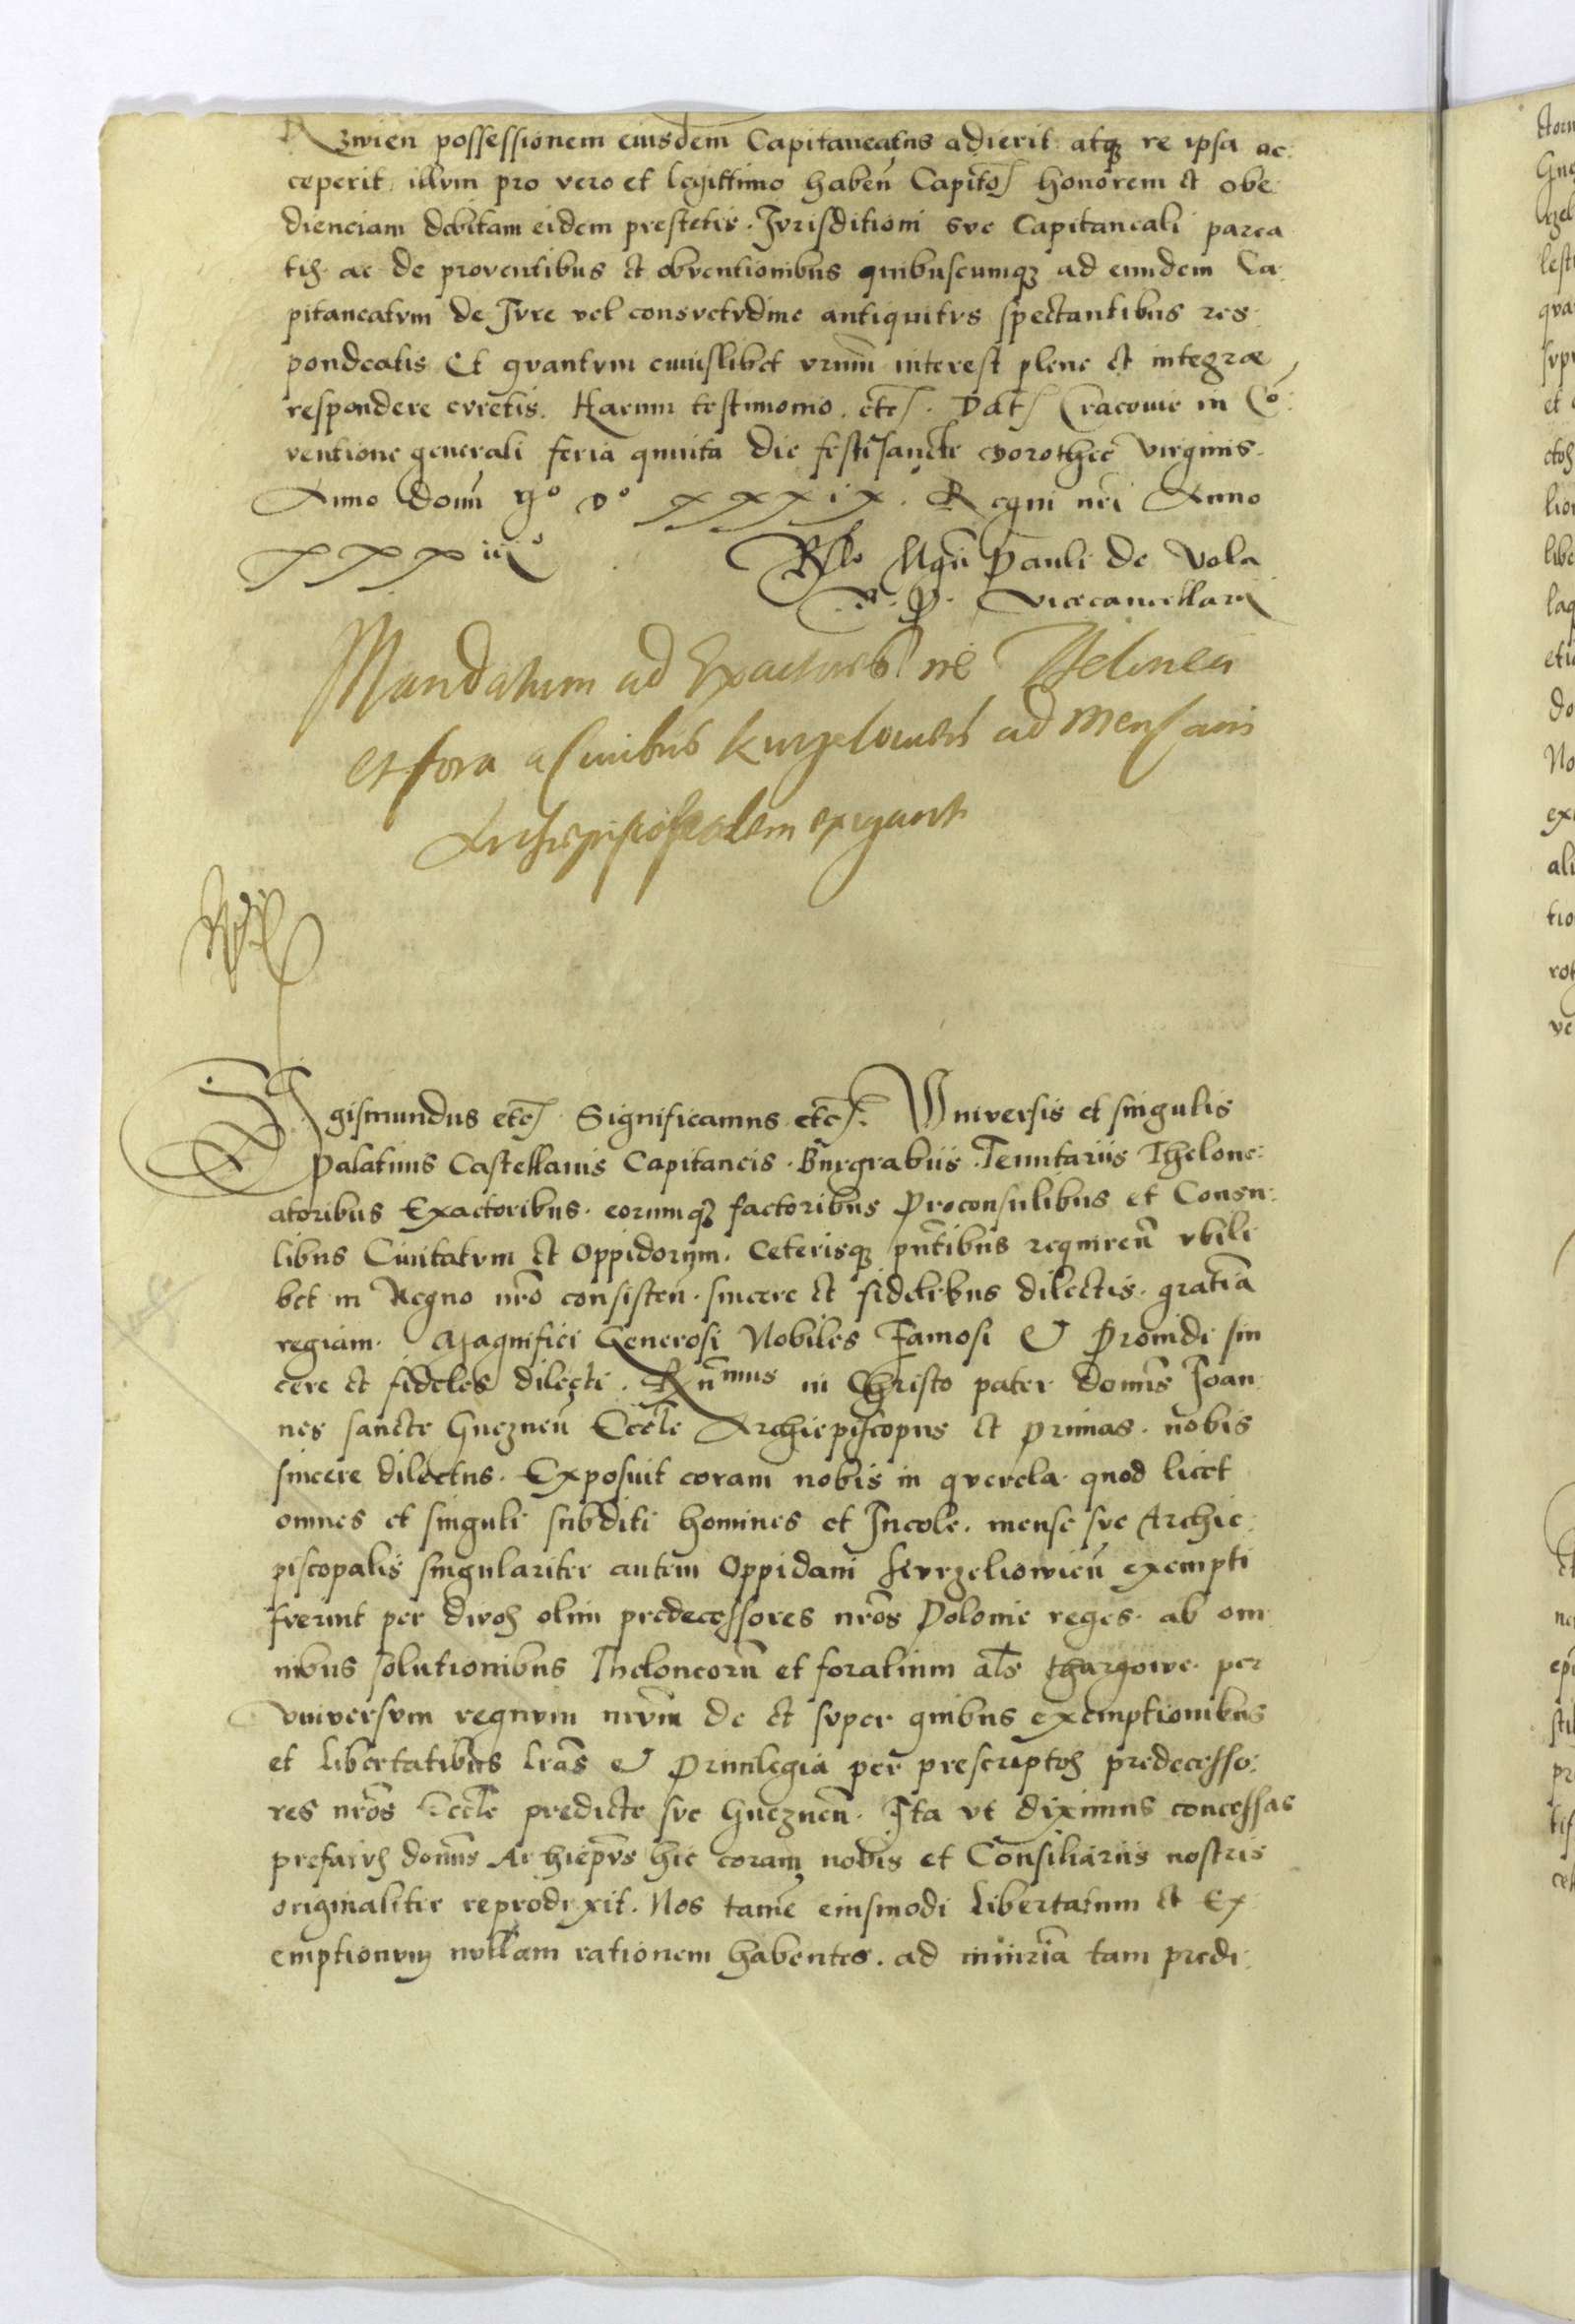 Rzwien possessionem eiusdem Capitaneatus adierit atq3 re ipsa ac:
ceperit, illvm pro vero et legittimo habeñ Capitõ honorem et obe
dienciam debitam eidem prestetis. Jvrisditioni sve Capitaneali parea
tis. ac de proventibus et obventionibus quibuscumq3 ad eundem Ca:
pitaneatvm de Jvre vel consvetvdine antiquitvs spectantibus res:
pondeatis Et qvantvm cuiuslibet vrũm interest plene et integræ
respondere cvretis. Harum testimonio. etc. Dat Cracovie in Cõ:
ventione generali feria quinta die festi sancte Dorothee virginis.
Anno domi Mº Dº XXXIX. Regni nri Anno
XXXiiiº
Rlo Mgci Pauli de Vola
R. P. Vicecancellarii
Mandatum ad Exactores ne Thelonea
et fora a Civibus Kurzelouien ad mensam
Archiepiscopalem exigant
Sigismundus etc. Significamus etc. Vniversis et singulis
Palatinis Castellanis Capitaneis. Burgrabiis. Tenutariis Thelone:
atoribus Exactoribus. eorumq3 factoribus Proconsulibus et Consu:
libus Civitatvm et Oppidorum. Ceterisq3 pñtibus requireñ vbili
bet in Regno nrõ consisteñ. sincere et fidelibus dilectis. gratiã
regiam. Magnifici Generosi Nobiles Famosi & Providi sin
cere et fideles dilecti. Rñmus in Christo pater domĩs Joan
nes sancte Gnezneñ Eccle Archiepiscopus et Primas. nobis
sincere dilectus. Exposuit coram nobis in qverela. quod licet
omnes et singuli subditi homines et Incole. mense sve Archie:
piscopalis singulariter autem Oppidani Kvrzeliowieñ exempti
fverint per divos olim predecessores nrõs Polonie reges. ab om
nibus solutionibus Theloneorũ et foralium als thargowe. per
vniversvm regnvm nrvm de et svper quibus exemptionibus
et libertatibus lrãs & Privilegia per prescriptos predecesso:
res nrõs Eccle predicte sve Gnezneñ. Ita vt diximus concessas
prefatvs domĩs Archiepvs hic coram nobis et Consiliariis nostris
originaliter reprodvxit. Nos tamẽ eiusmodi libertatum et Ex
emptionvm nvllam rationem habentes. ad iniuriã tam predi: